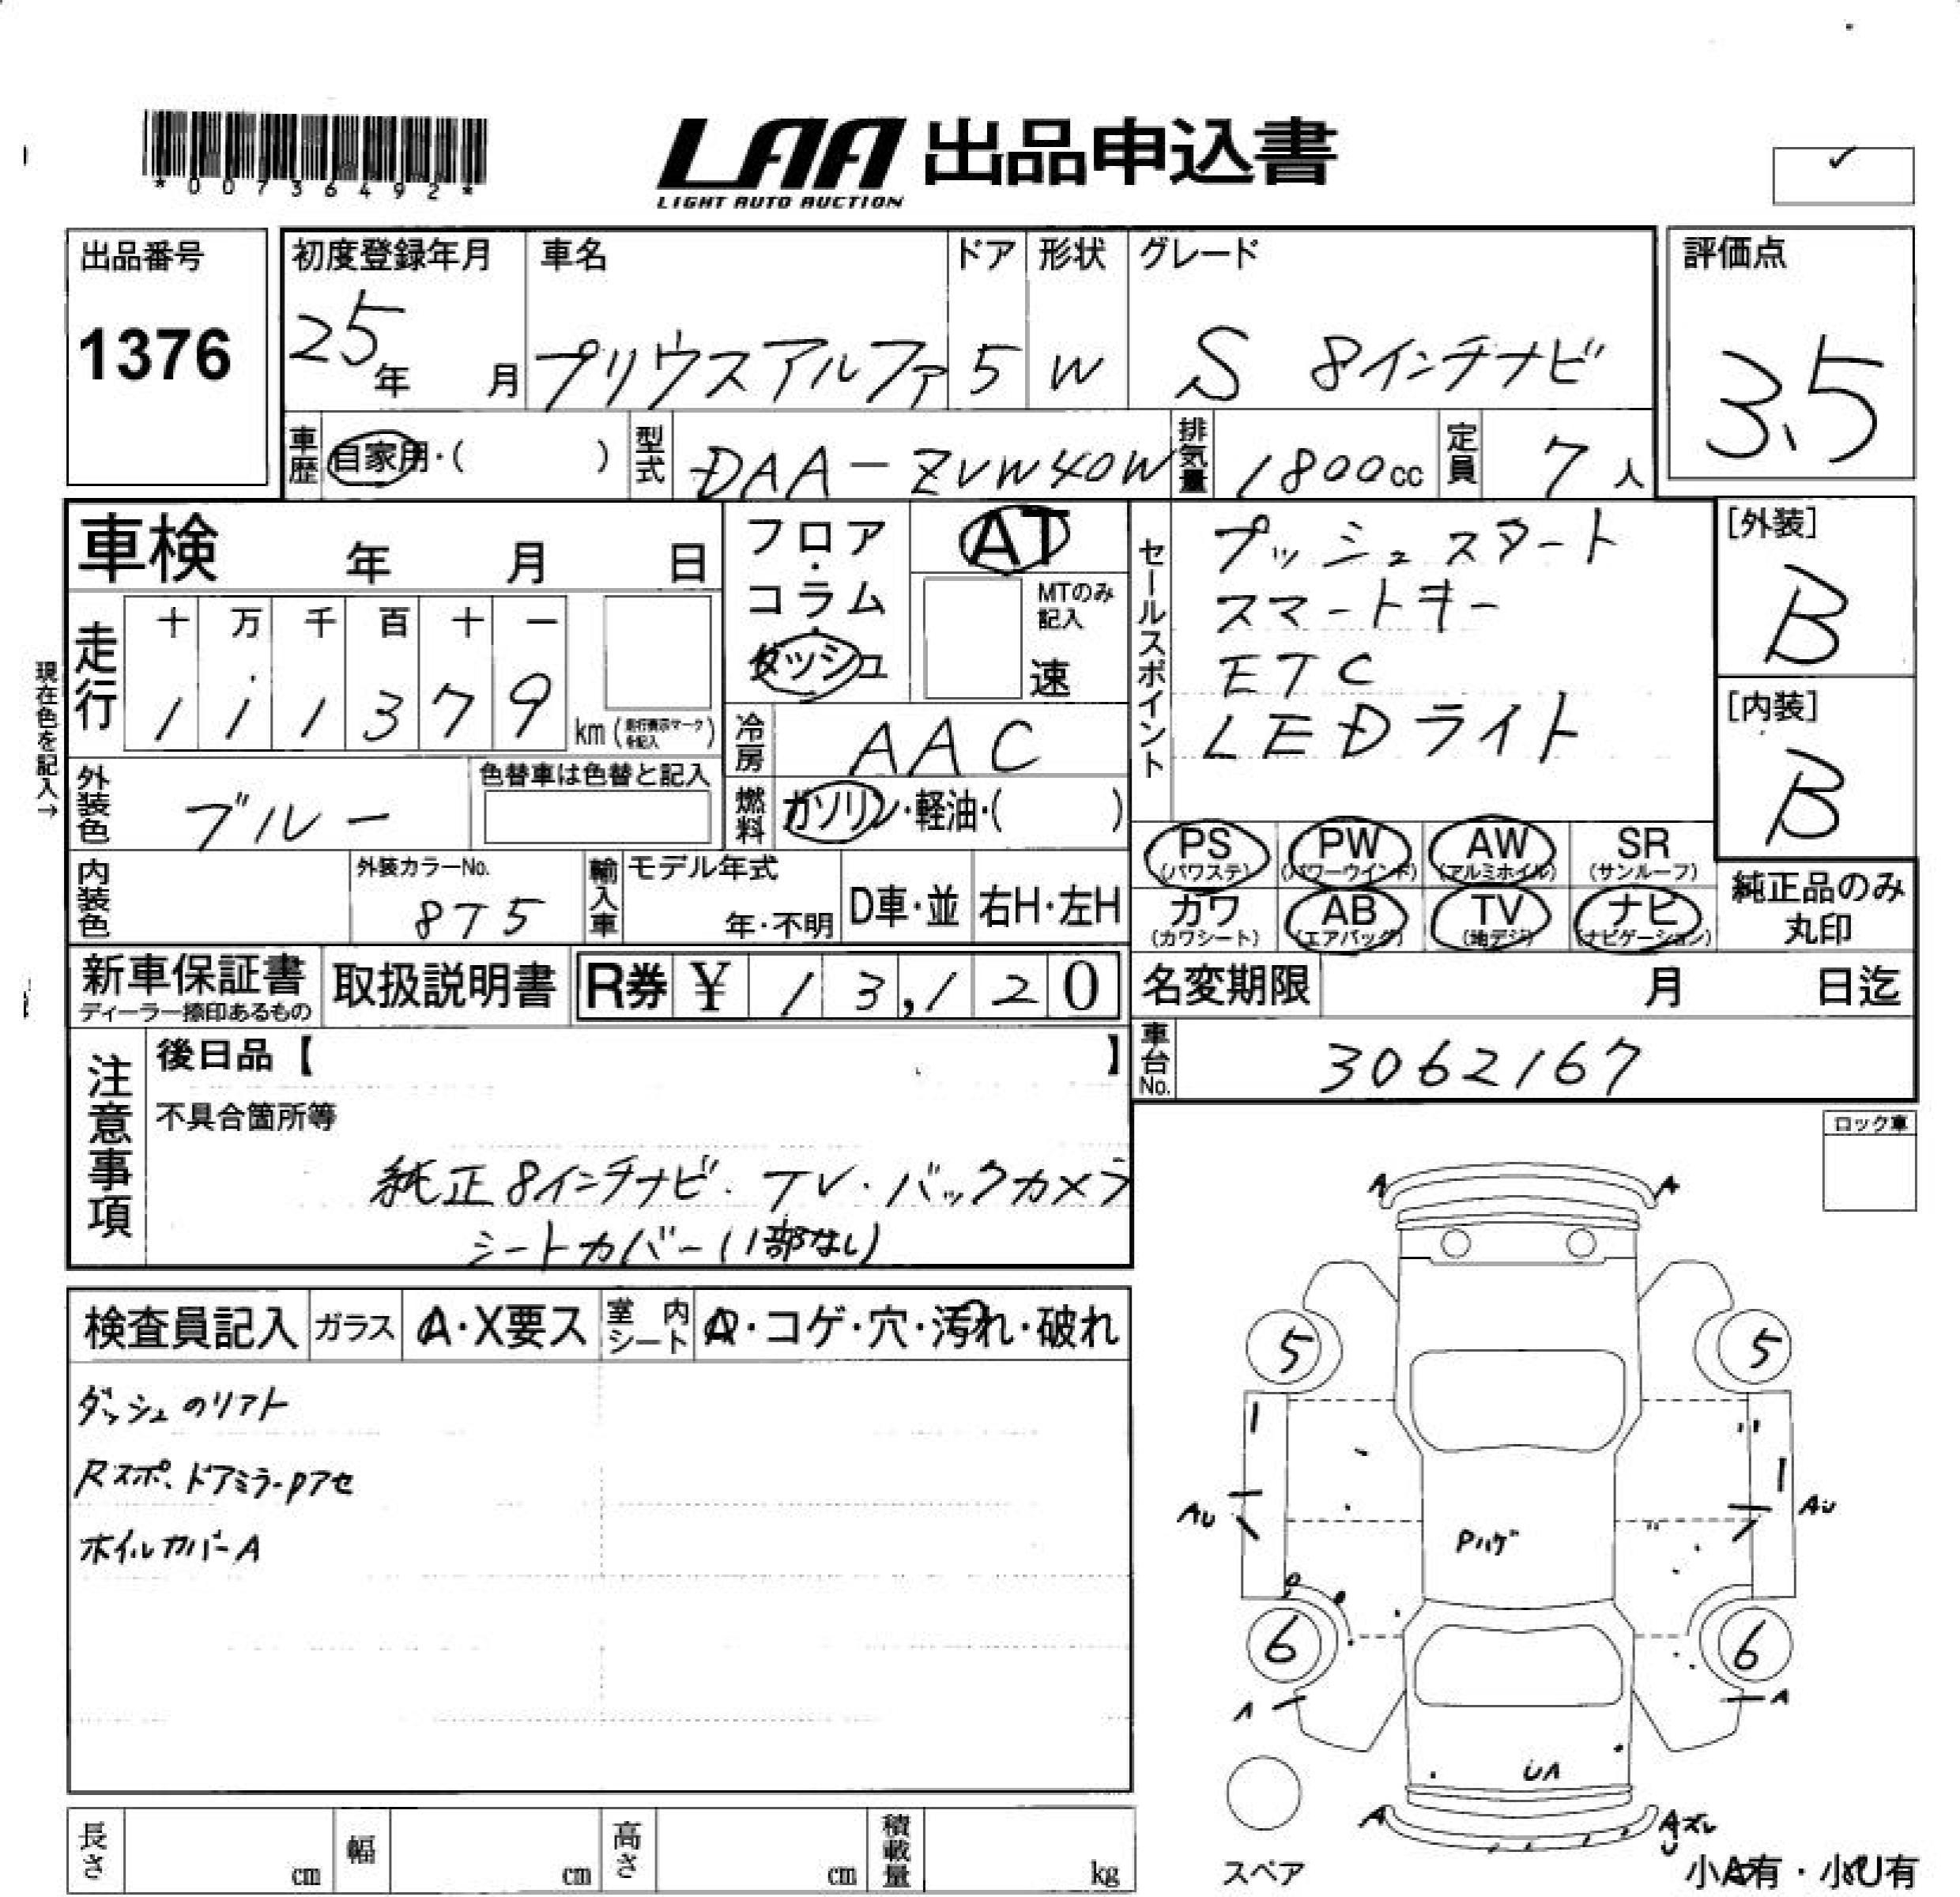 *00736492*
LAA 出品申込書
LIGHT AUTO AUCTION
出品番号
1376
初度登録年月
25年 月
車名
プリウスアルファ
ドア
5
形状
W
グレード
S 8インチナビ
評価点
3.5
車歴 自家用・( )
型式 DAA-ZVW40W
排気量 1800cc
定員 7人
車検 年 月 日
フロア・コラム・ダッシュ
AT
MTのみ記入
速
セールスポイント
プッシュスタート
スマートキー
ETC
LEDライト
[外装]
B
[内装]
B
現在色を記入→
走行
十 万 千 百 十 一
1 1 1 3 7 9 km (走行表示マークを記入)
冷房 AAC
外装色 ブルー
色替車は色替と記入
燃料 ガソリン・軽油・( )
内装色
外装カラーNo.
8T5
輸入車
モデル年式
年・不明
D車・並
右H・左H
PS (パワステ) PW (パワーウインド) AW (アルミホイル) SR (サンルーフ)
カワ (カワシート) AB (エアバッグ) TV (地デジ) ナビ (ナビゲーション)
純正品のみ丸印
新車保証書
ディーラー捺印あるもの
取扱説明書
R券 ¥ 13,120
名変期限 月 日迄
車台No. 3062167
注意事項
後日品【 】
不具合箇所等
純正8インチナビ・TV・バックカメラ
シートカバー(1部なし)
ロック車
検査員記入
ガラス A・X要ス
室内シート A・コゲ・穴・汚れ・破れ
ダッシュのリアト
Rスポ、ドアミラーPアセ
ホイルカバーA
A A
5 5
AU AU
Pハゲ
6 6
A A
UA
A Aズレ
スペア
小A有・小U有
長さ cm
幅 cm
高さ cm
積載量 kg